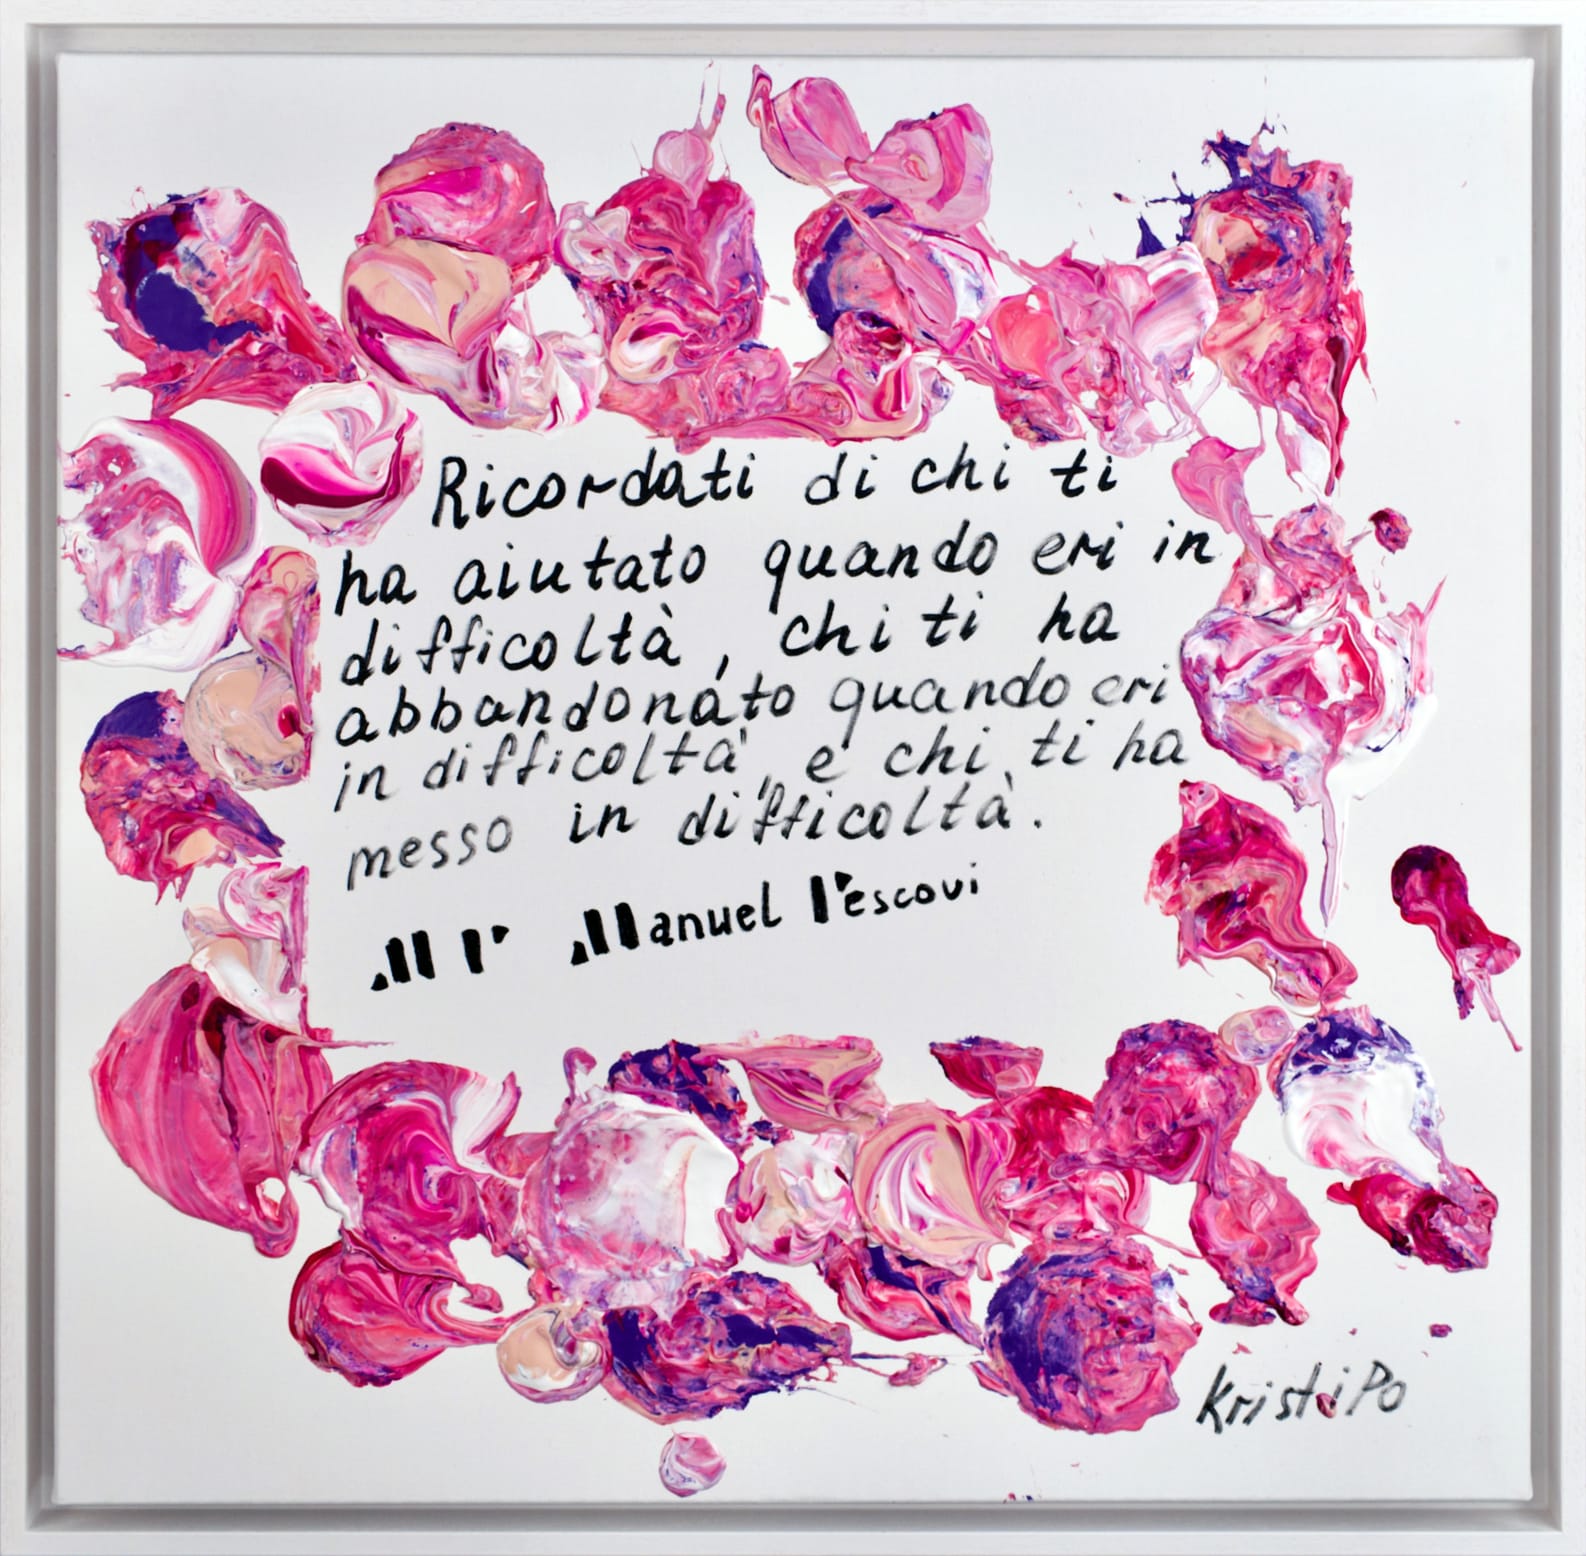 Ricordati di chi ti
ha aiutato quando eri in
difficoltà, chi ti ha
abbandonato quando eri
in difficoltà, e chi ti ha
messo in difficoltà.
MP Manuel Pescovi
KristiPo